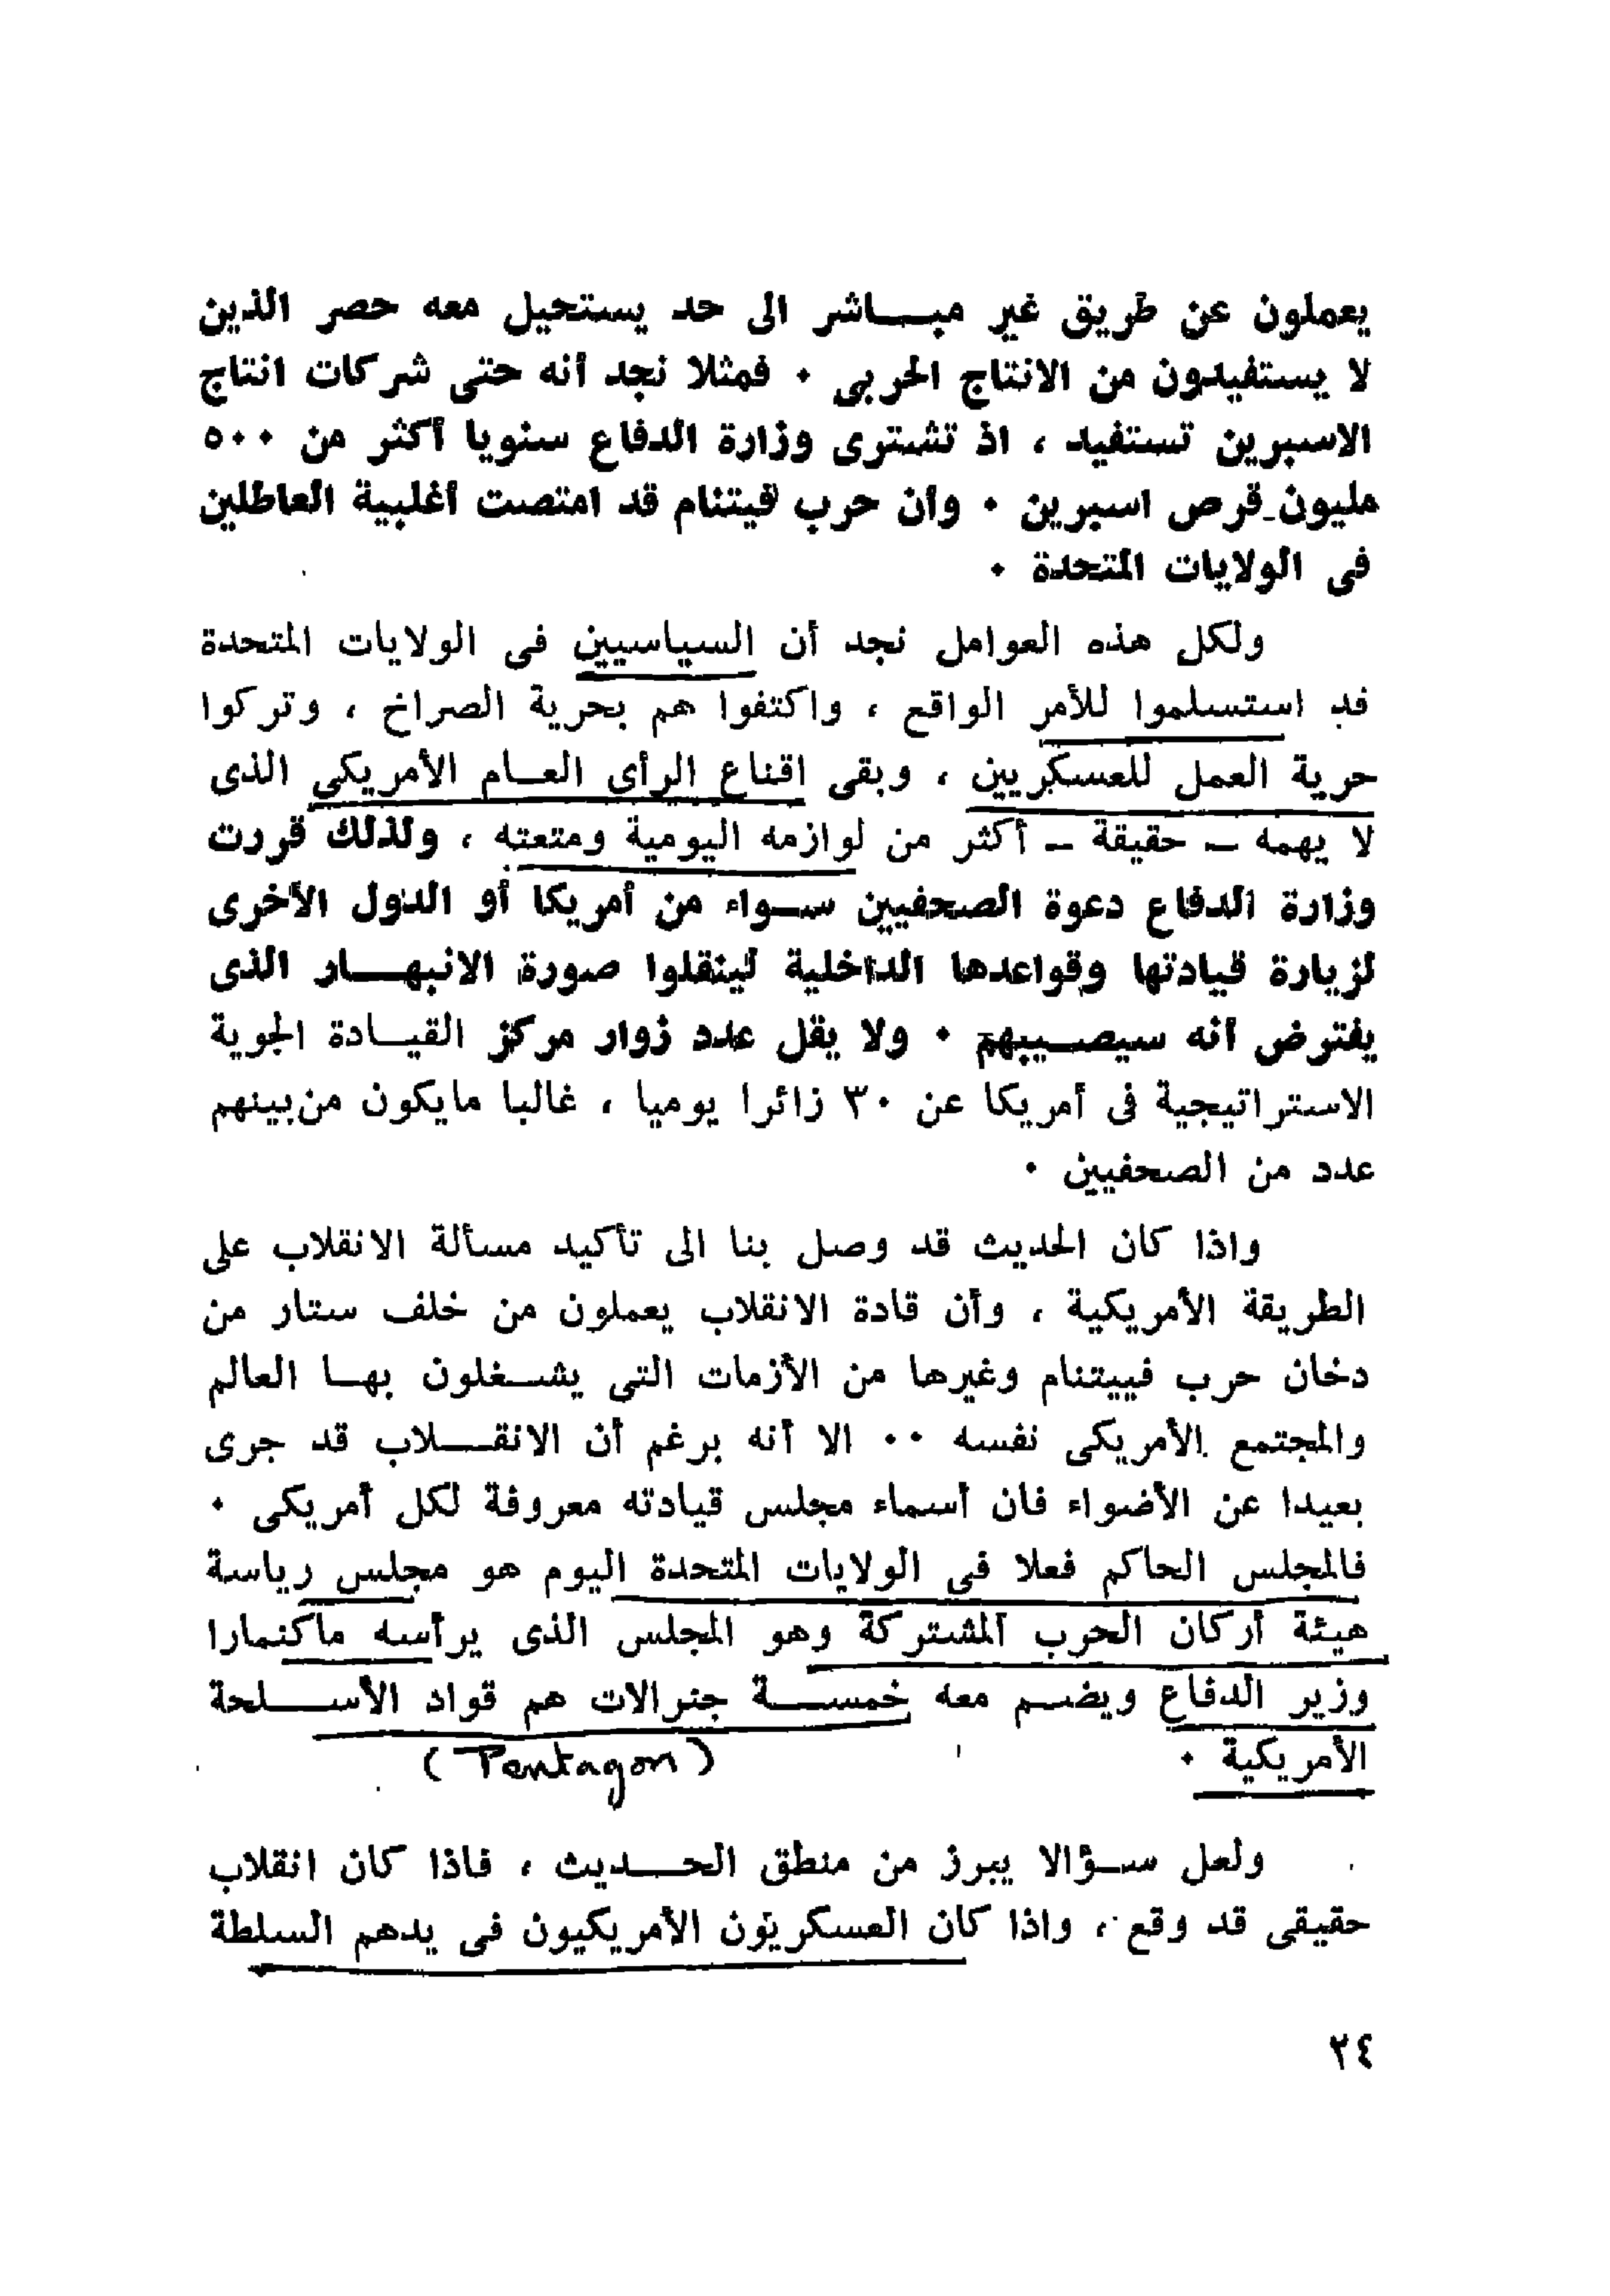 يعملون عن طريق غير مبـــاشر الى حد يستحيل معه حصر الذين
لا يستفيدون من الانتاج الحربى ٠ فمثلا نجد أنه حتى شركات انتاج
الاسبرين تستفيد ، اذ تشترى وزارة الدفاع سنويا أكثر من ٥٠٠
مليون قرص اسبرين ٠ وان حرب ڤيتنام قد امتصت أغلبية العاطلين
فى الولايات المتحدة ٠
ولكل هذه العوامل نجد أن السياسيين فى الولايات المتحدة
قد استسلموا للأمر الواقع ، واكتفوا هم بحرية الصراخ ، وتركوا
حرية العمل للعسكريين ، وبقى اقناع الرأى العـام الأمريكى الذى
لا يهمه – حقيقة – أكثر من لوازمه اليومية ومتعته ، ولذلك قررت
وزارة الدفاع دعوة الصحفيين ســواء من أمريكا أو الدول الأخرى
لزيارة قيادتها وقواعدها الداخلية لينقلوا صورة الانبهـــار الذى
يفترض أنه سيصــيبهم ٠ ولا يقل عدد زوار مركز القيـادة الجوية
الاستراتيجية فى أمريكا عن ٣٠ زائرا يوميا ، غالبا مايكون من بينهم
عدد من الصحفيين ٠
واذا كان الحديث قد وصل بنا الى تأكيد مسألة الانقلاب على
الطريقة الأمريكية ، وأن قادة الانقلاب يعملون من خلف ستار من
دخان حرب فييتنام وغيرها من الأزمات التى يشـغلون بهـا العالم
والمجتمع الأمريكى نفسه ٠٠ الا أنه برغم أن الانقــلاب قد جرى
بعيدا عن الأضواء فان أسماء مجلس قيادته معروفة لكل أمريكى ٠
فالمجلس الحاكم فعلا فى الولايات المتحدة اليوم هو مجلس رياسة
هيئة أركان الحرب المشتركة وهو المجلس الذى يرأسه ماكنمارا
وزير الدفاع ويضـم معه خمســة جنرالات هم قواد الأســـلحة
الأمريكية ٠
(Pentagon)
ولعل ســؤالا يبرز من منطق الحـــديث ، فاذا كان انقلاب
حقيقى قد وقع ، واذا كان العسكريون الأمريكيون فى يدهم السلطة
٢٤